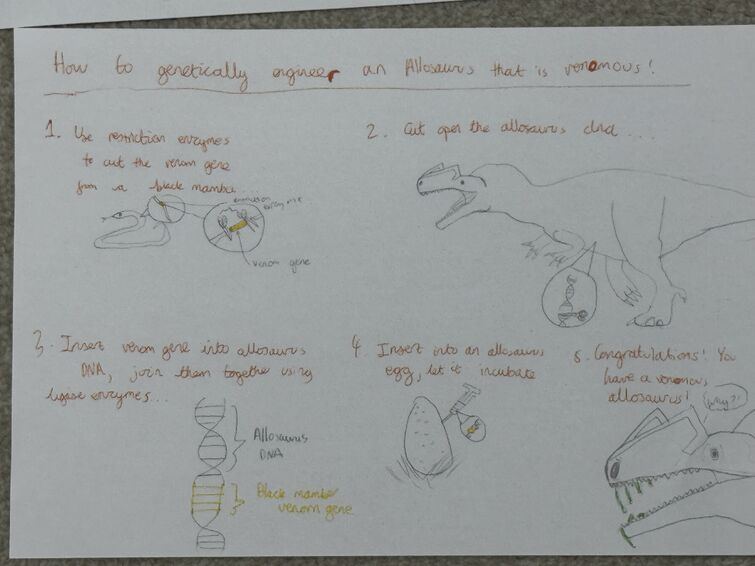 How to genetically engineer an Allosaurus that is venomous!
1. Use restriction enzymes
to cut the venom gene
from a black mamba...
restriction
enzyme
venom gene
2. Cut open the allosaurus dna ....
3. Insert venom gene into allosaurus
DNA, join them together using
ligase enzymes...
Allosaurus
DNA
Black mamba
venom gene
4. Insert into an allosaurus
egg, let it incubate
5. Congratulations! You
have a venomous
allosaurus!
Why?!